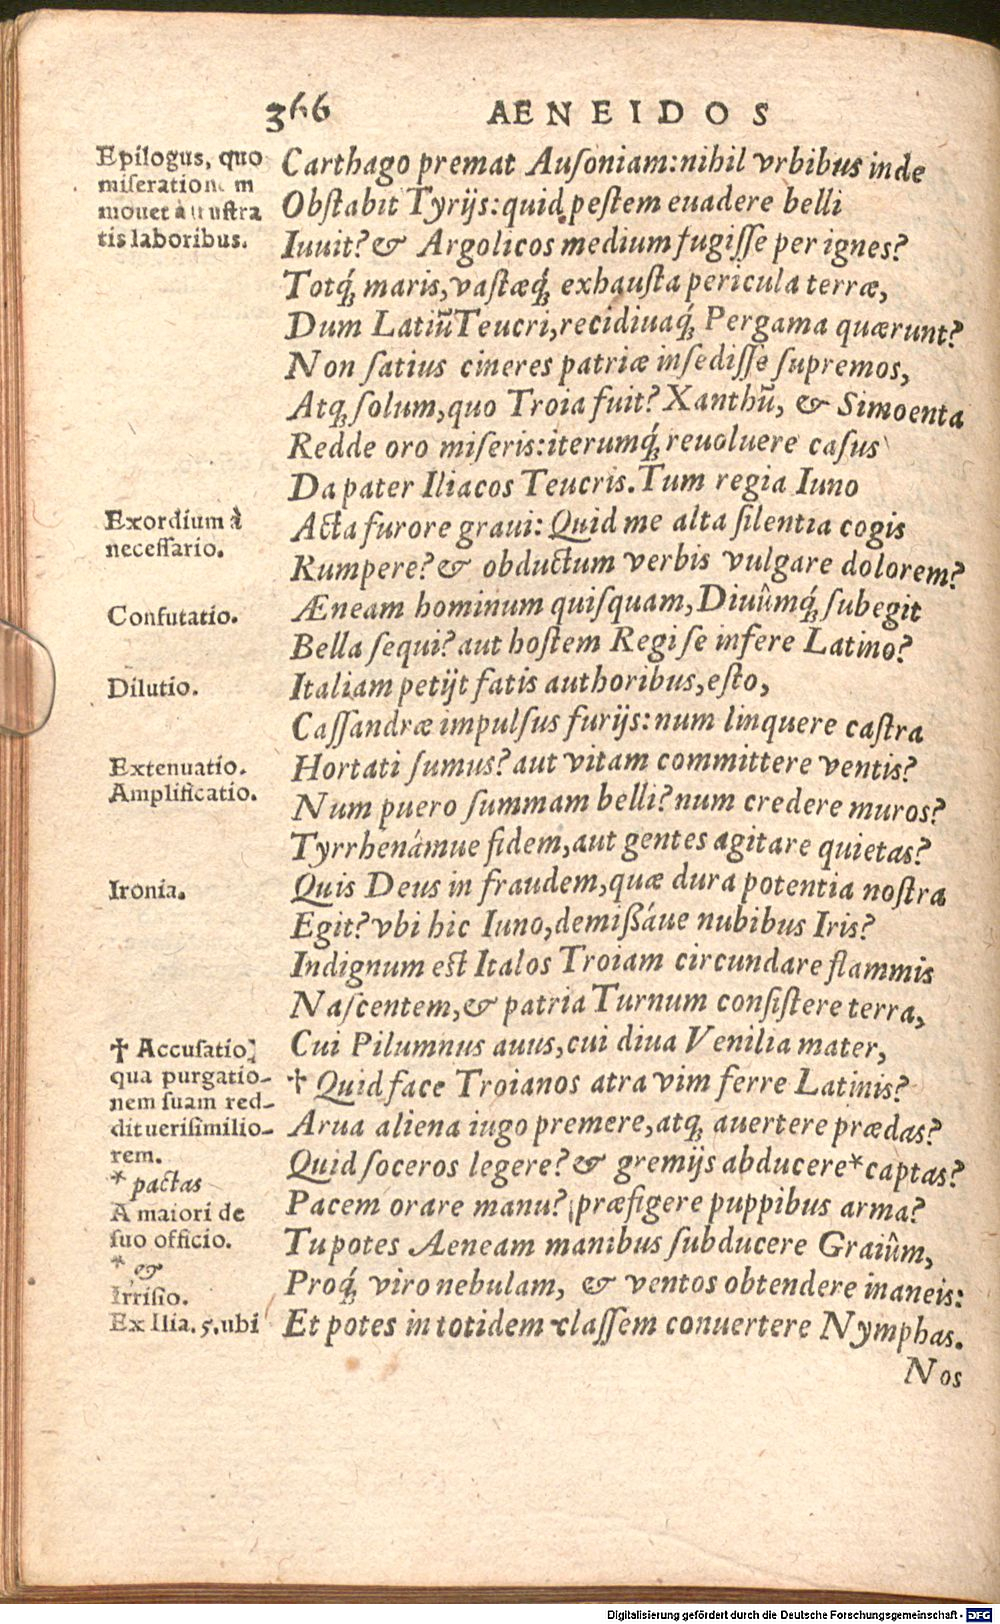 366
AENEIDOS
Epilogus, quo
miseration m
mouet à ustra
tis laboribus.
Carthago premat Auſoniam: nihil vrbibus inde
Obſtabit Tyrijs: quid peſtem euadere belli
Iuuit? & Argolicos medium fugiſſe per ignes?
Totq́; maris, vaſtæq́; exhauſta pericula terræ,
Dum Latiũ Teucri, recidiuaq́; Pergama quærunt?
Non ſatius cineres patriæ inſediſſe ſupremos,
Atq; ſolum, quo Troia fuit? Xanthũ, & Simoenta
Redde oro miſeris: iterumq́; reuoluere caſus
Da pater Iliacos Teucris. Tum regia Iuno
Exordium à
neceſſario.
Acta furore graui: Quid me alta ſilentia cogis
Rumpere? & obductum verbis vulgare dolorem?
Confutatio.
Æneam hominum quiſquam, Diuûmq́; ſubegit
Bella ſequi? aut hoſtem Regi ſe infere Latino?
Dilutio.
Italiam petijt fatis authoribus, eſto,
Caſſandræ impulſus furijs: num linquere caſtra
Extenuatio.
Amplificatio.
Hortati ſumus? aut vitam committere ventis?
Num puero ſummam belli? num credere muros?
Tyrrhenámue fidem, aut gentes agitare quietas?
Ironia.
Quis Deus in fraudem, quæ dura potentia noſtra
Egit? vbi hic Iuno, demißáue nubibus Iris?
Indignum est Italos Troiam circundare flammis
Naſcentem, & patria Turnum conſiſtere terra,
Cui Pilumnus auus, cui diua Venilia mater,
† Accuſatio,
qua purgatio-
nem ſuam red-
dit ueriſimilio-
rem.
* pactas
A maiori de
ſuo officio.
* &
Irriſio.
Ex Ilia. 5. ubi
† Quid face Troianos atra vim ferre Latinis?
Arua aliena iugo premere, atq; auertere prædas?
Quid ſoceros legere? & gremijs abducere * captas?
Pacem orare manu? præfigere puppibus arma?
Tu potes Aeneam manibus ſubducere Graiûm,
Proq́; viro nebulam, & ventos obtendere inaneis:
Et potes in totidem claſſem conuertere Nymphas.
Nos
Digitalisierung gefördert durch die Deutsche Forschungsgemeinschaft - DFG